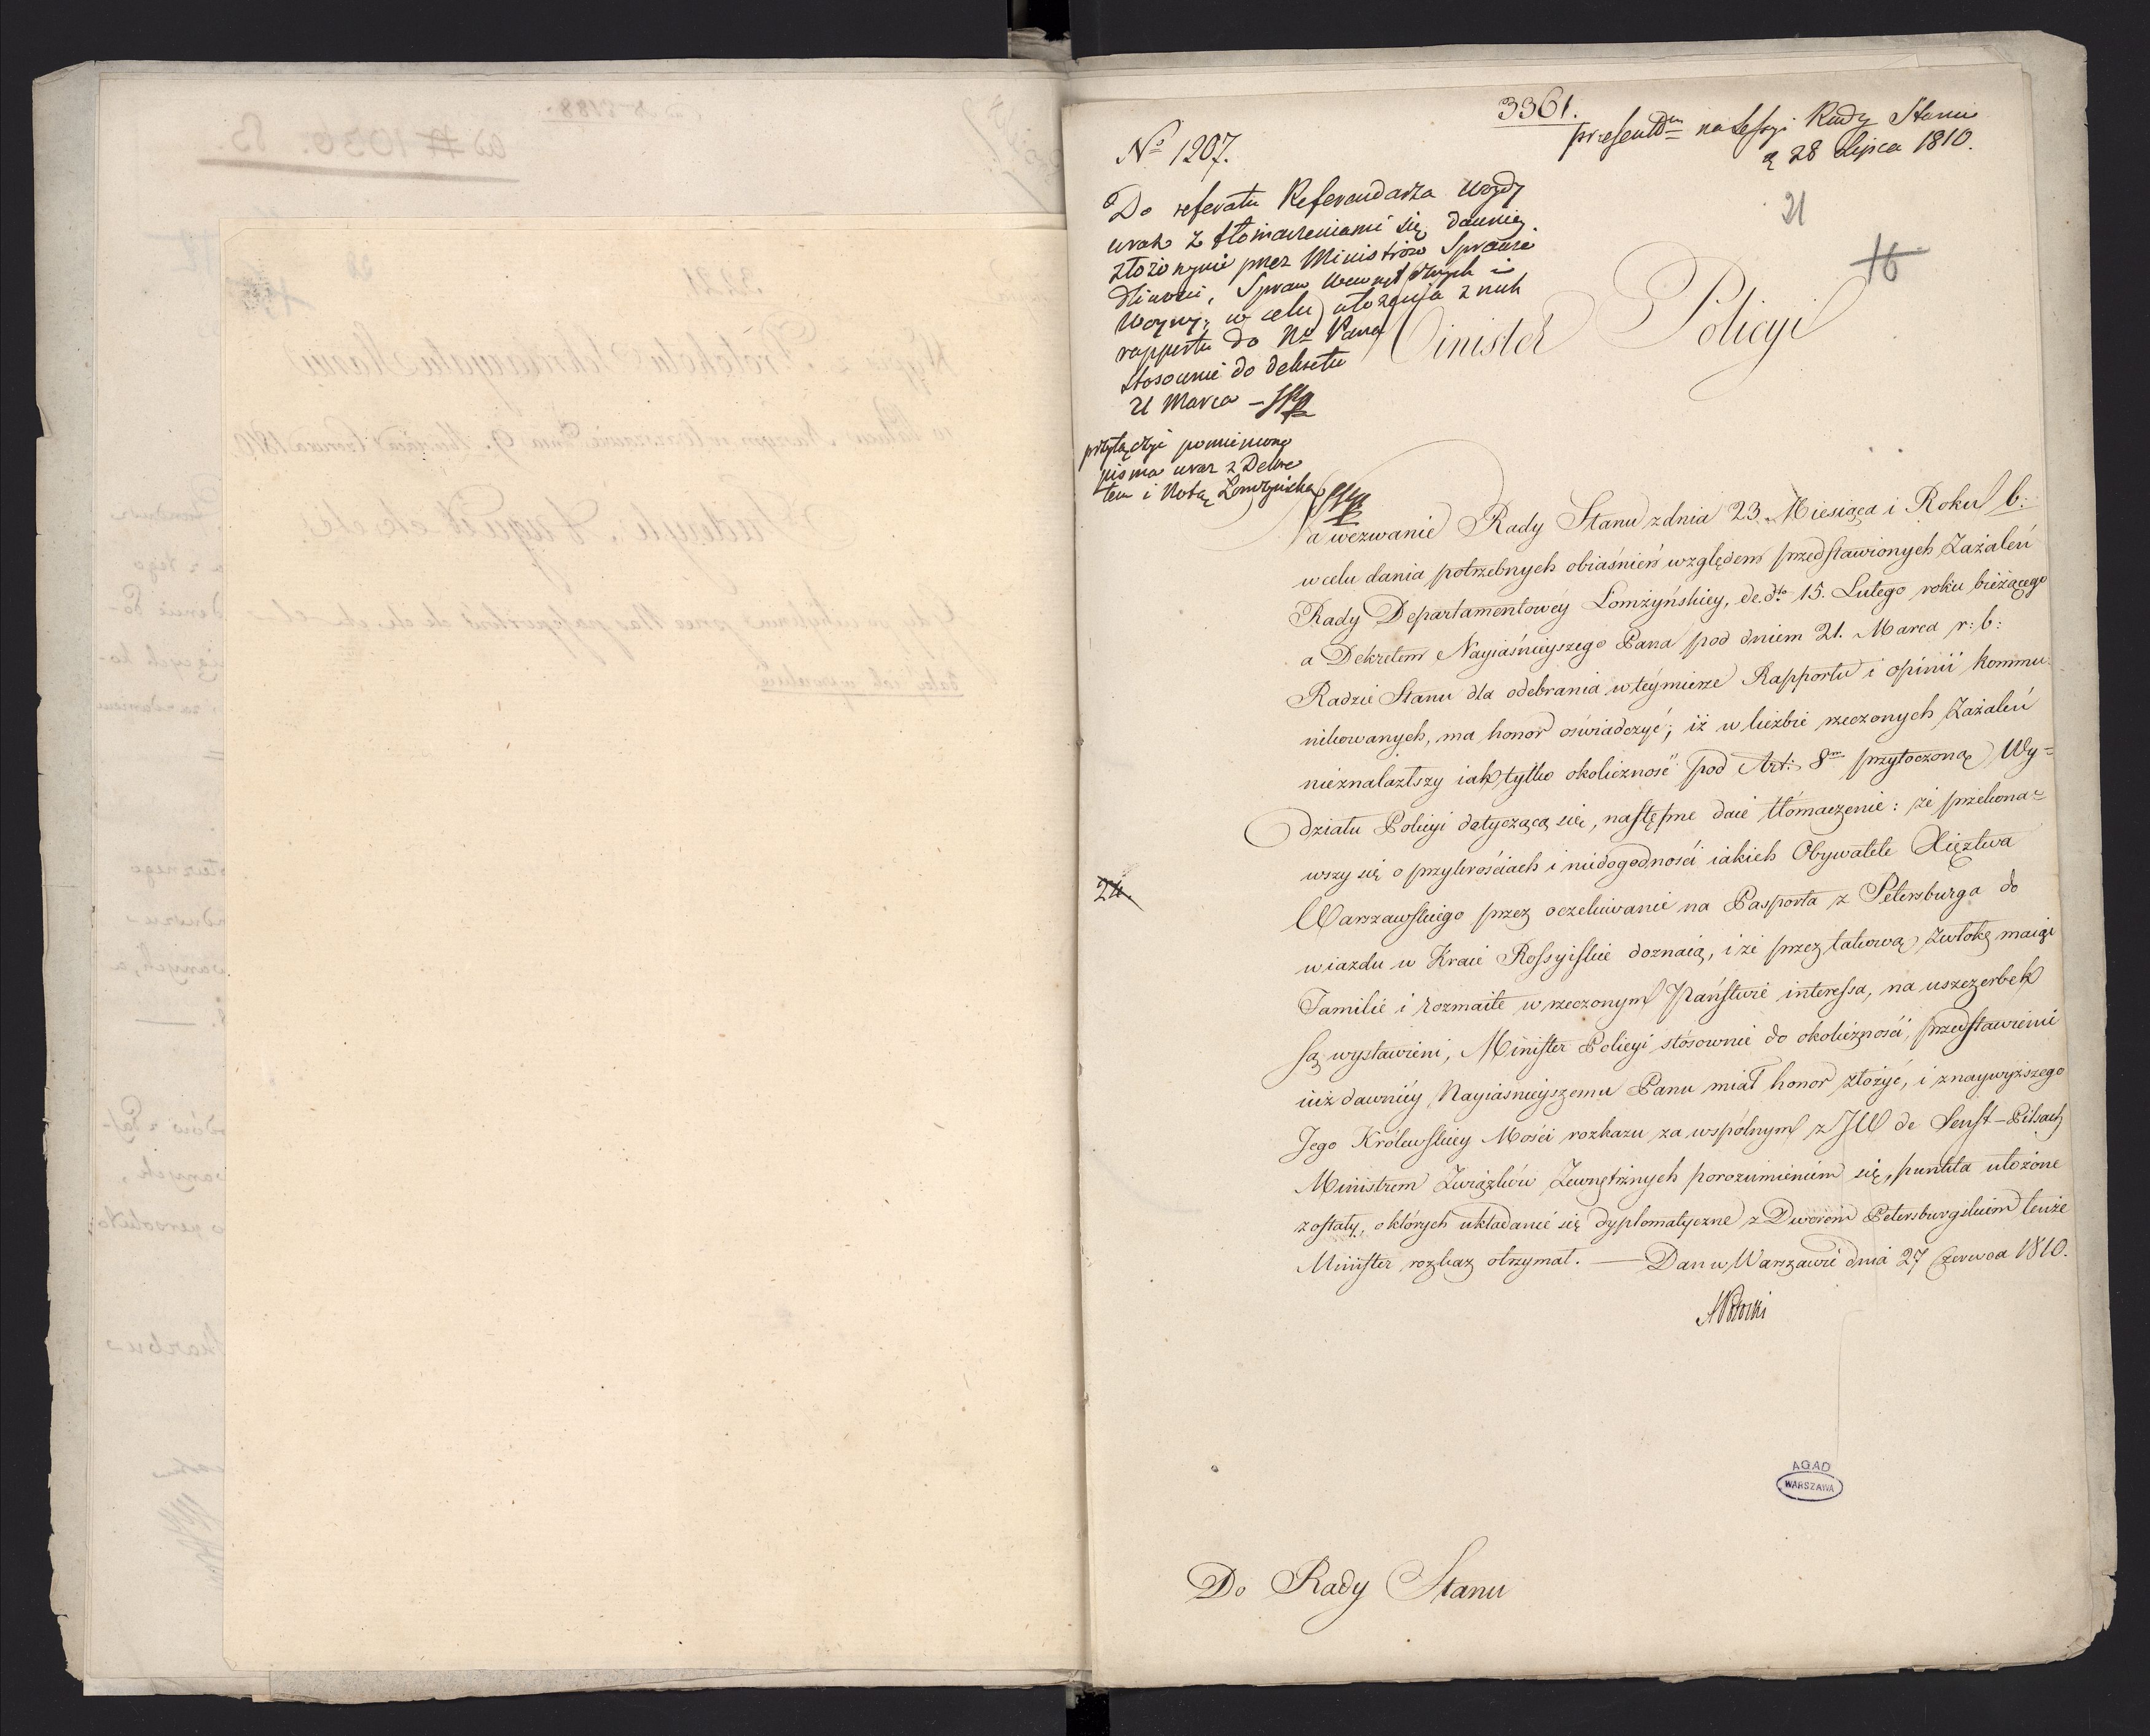 3361.
No 1207.
presentdm na Sessyi Rady Stanu
d. 28 Lipca 1810.
21
16
Do referatu Referendarza
wraz z tłomaczeniami się dawniey
złożonymi przez Ministrów Sprawie
dliwości, Spraw Wewnętrznych i
Woyny; w celu ułożenia z nich
rapportu do Nn Pana
stosownie do dekretu
21 Marca —
przyłączyć pomienione
pisma wraz z Dekre
tem i Notą Łomżyńską
Minister Policyi
Na wezwanie Rady Stanu z dnia 23. Miesiąca i Roku b:
w celu dania potrzebnych obiaśnień względem przedstawionych Zażaleń
Rady Departamentowéy Łomżyńskiey, de dto 15. Lutego roku bieżącego
a Dekretem Nayiaśnieyszego Pana pod dniem 21. Marca r: b:
Radzie Stanu dla odebrania w téy mierze Rapportu i opinii kommu-
nikowanych, ma honor oświadczyć; iż w liczbie rzeczonych Zażaleń
nieznalazłszy iak tylko okoliczność pod Art: 8m przytoczoną Wy-
działu Policyi dotyczącą się, następne daie tłómaczenie: że przekona-
wszy się o przykrościach i niedogodności iakich Obywatele Xięztwa
Warszawskiego przez oczekiwanie na Pasporta z Petersburga do
wiazdu w Kraie Rossyiskie doznaią, i że przez takową zwłokę maiąc
Familie i rozmaite w rzeczonym Państwie interessa, na uszczerbek
są wystawieni, Minister Policyi stósownie do okoliczności, przedstawienie
iuż dawniéy Nayiaśnieyszemu Panu miał honor złożyć, i z naywyższego
Jego Królewskiey Mości rozkazu za wspólnym z JW de Senft-Pilsach
Ministrem Związków Zewnętrznych porozumieniem się, punkta ułożone
zostały, o których układanie się dyplomatyczne z Dworem Petersburgskim tenże
Minister rozkaz otrzymał. — Dan w Warszawie dnia 27 Czerwca 1810.
APotocki
24.
AGAD
WARSZAWA
Do Rady Stanu